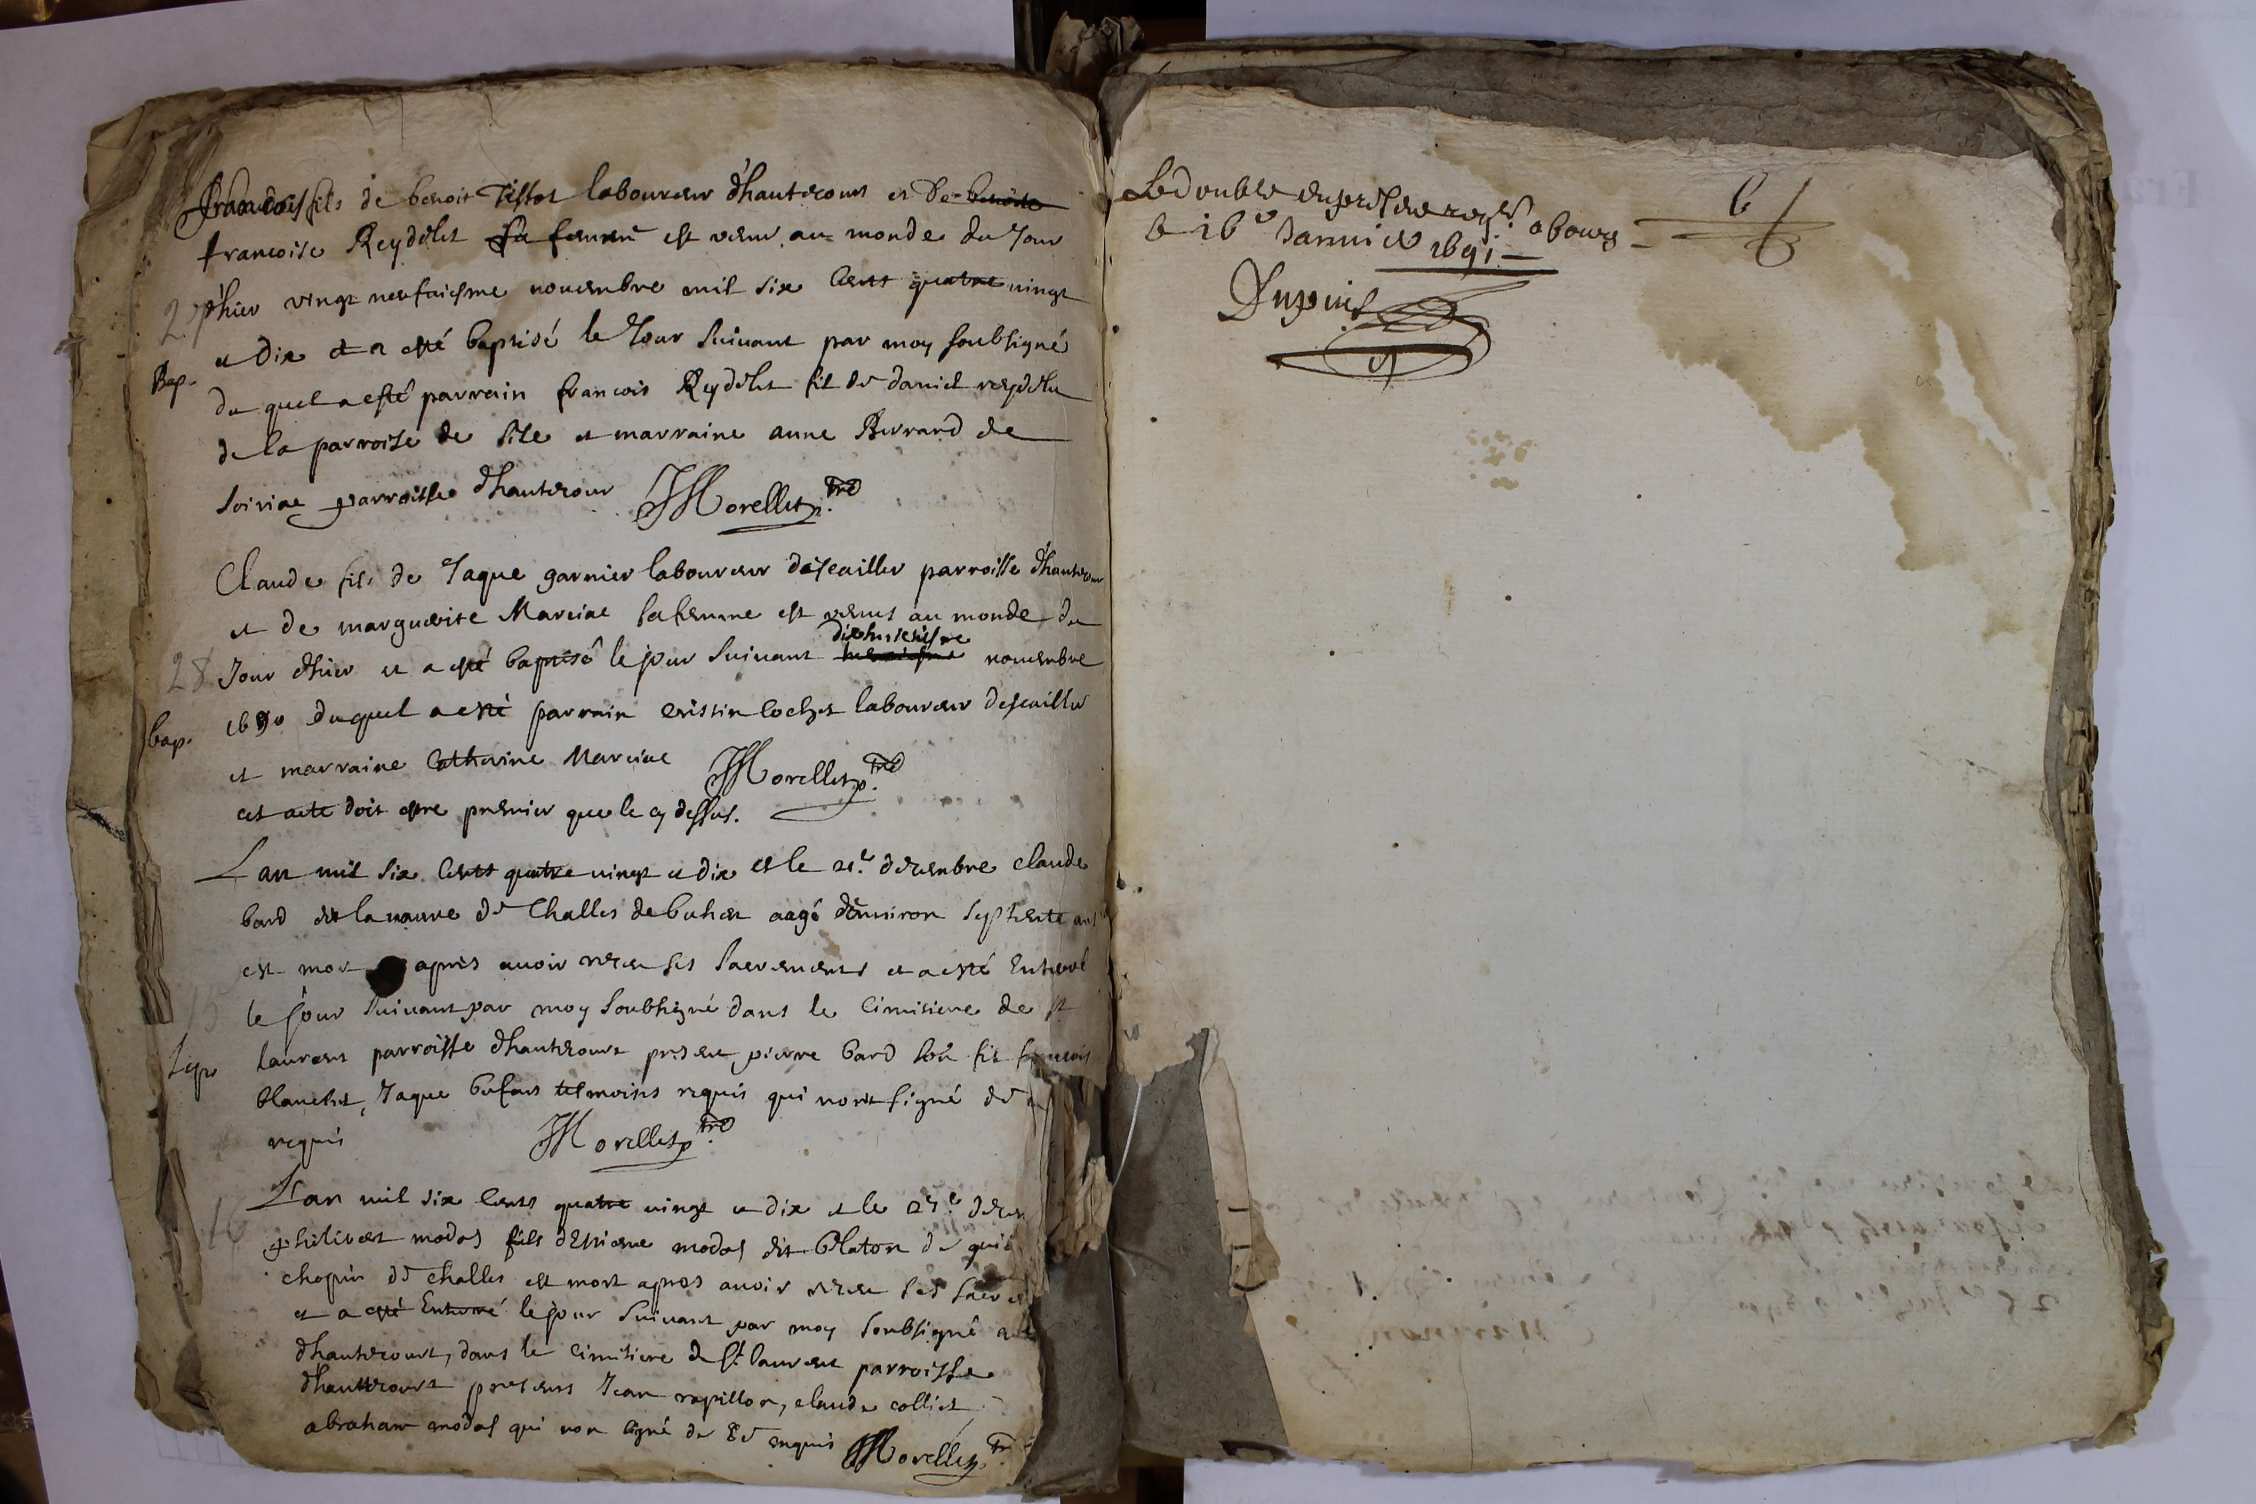 francois fils de benoit Tissot laboureur d'hautecourt et De benoite
francoise Reydelet sa femme est venu au monde du Jour
d'hier vingt neufuiesme nouembre mil six Cents quatre vingt
27
et dix et a esté baptisé le Jour suiuant par moy soubsigné
Bap.
du quel a esté parrain francois Reydelet fil de daniel reydelet
de la parroise de sise et marraine anne Burrand de
soiria parroisse d'hautecour JMorellet ptre
Claude fils de Jaque garnier laboureur descailler parroisse d'hautecour
et de marguerite Marciae sa femme est venus au monde du
dixhuictiesme
28 Jour d'hier et a esté baptisé le jour suiuant nouembre
1690 duquel a esté parrain loches laboureur descailler
bap.
et marraine Catherine Marciae JMorellet ptre
cet acte doit estre premier que le cy dessus.
Lan mil six Cents quatre vingt et dix et le 21.e decembre claude
bard dit la de Challes de bohas aagé d'enuiron septente ans
est mort apres auoir receu ses sacrements et a esté Enterré
15
le jour suiuant par moy soubsigné dans le Cimitiere de st
sep.
laurent parroisse d'hautecourt present pierre bard son fil francois
blanchet, Jaque bufait tesmoins requis qui nont signé de
requis JMorellet ptre
16
Lan mil six Cents quatre vingt et dix et le 25.e decem
philibert modas fils d'Etiene modas dit Platon de
chopin de challes est mort apres auoir receu ses sacre
et a esté Enterré le jour suiuant par moy soubsigné
d'hautecourt, dans le Cimitiere de St. laurent parroisse
d'hautecourt presents Jean rapillon, claude colliet
abraham modas qui non signé de enquis JMorellet ptre
Le double du present a bourg
le 16e Januier 1691
Dupuis